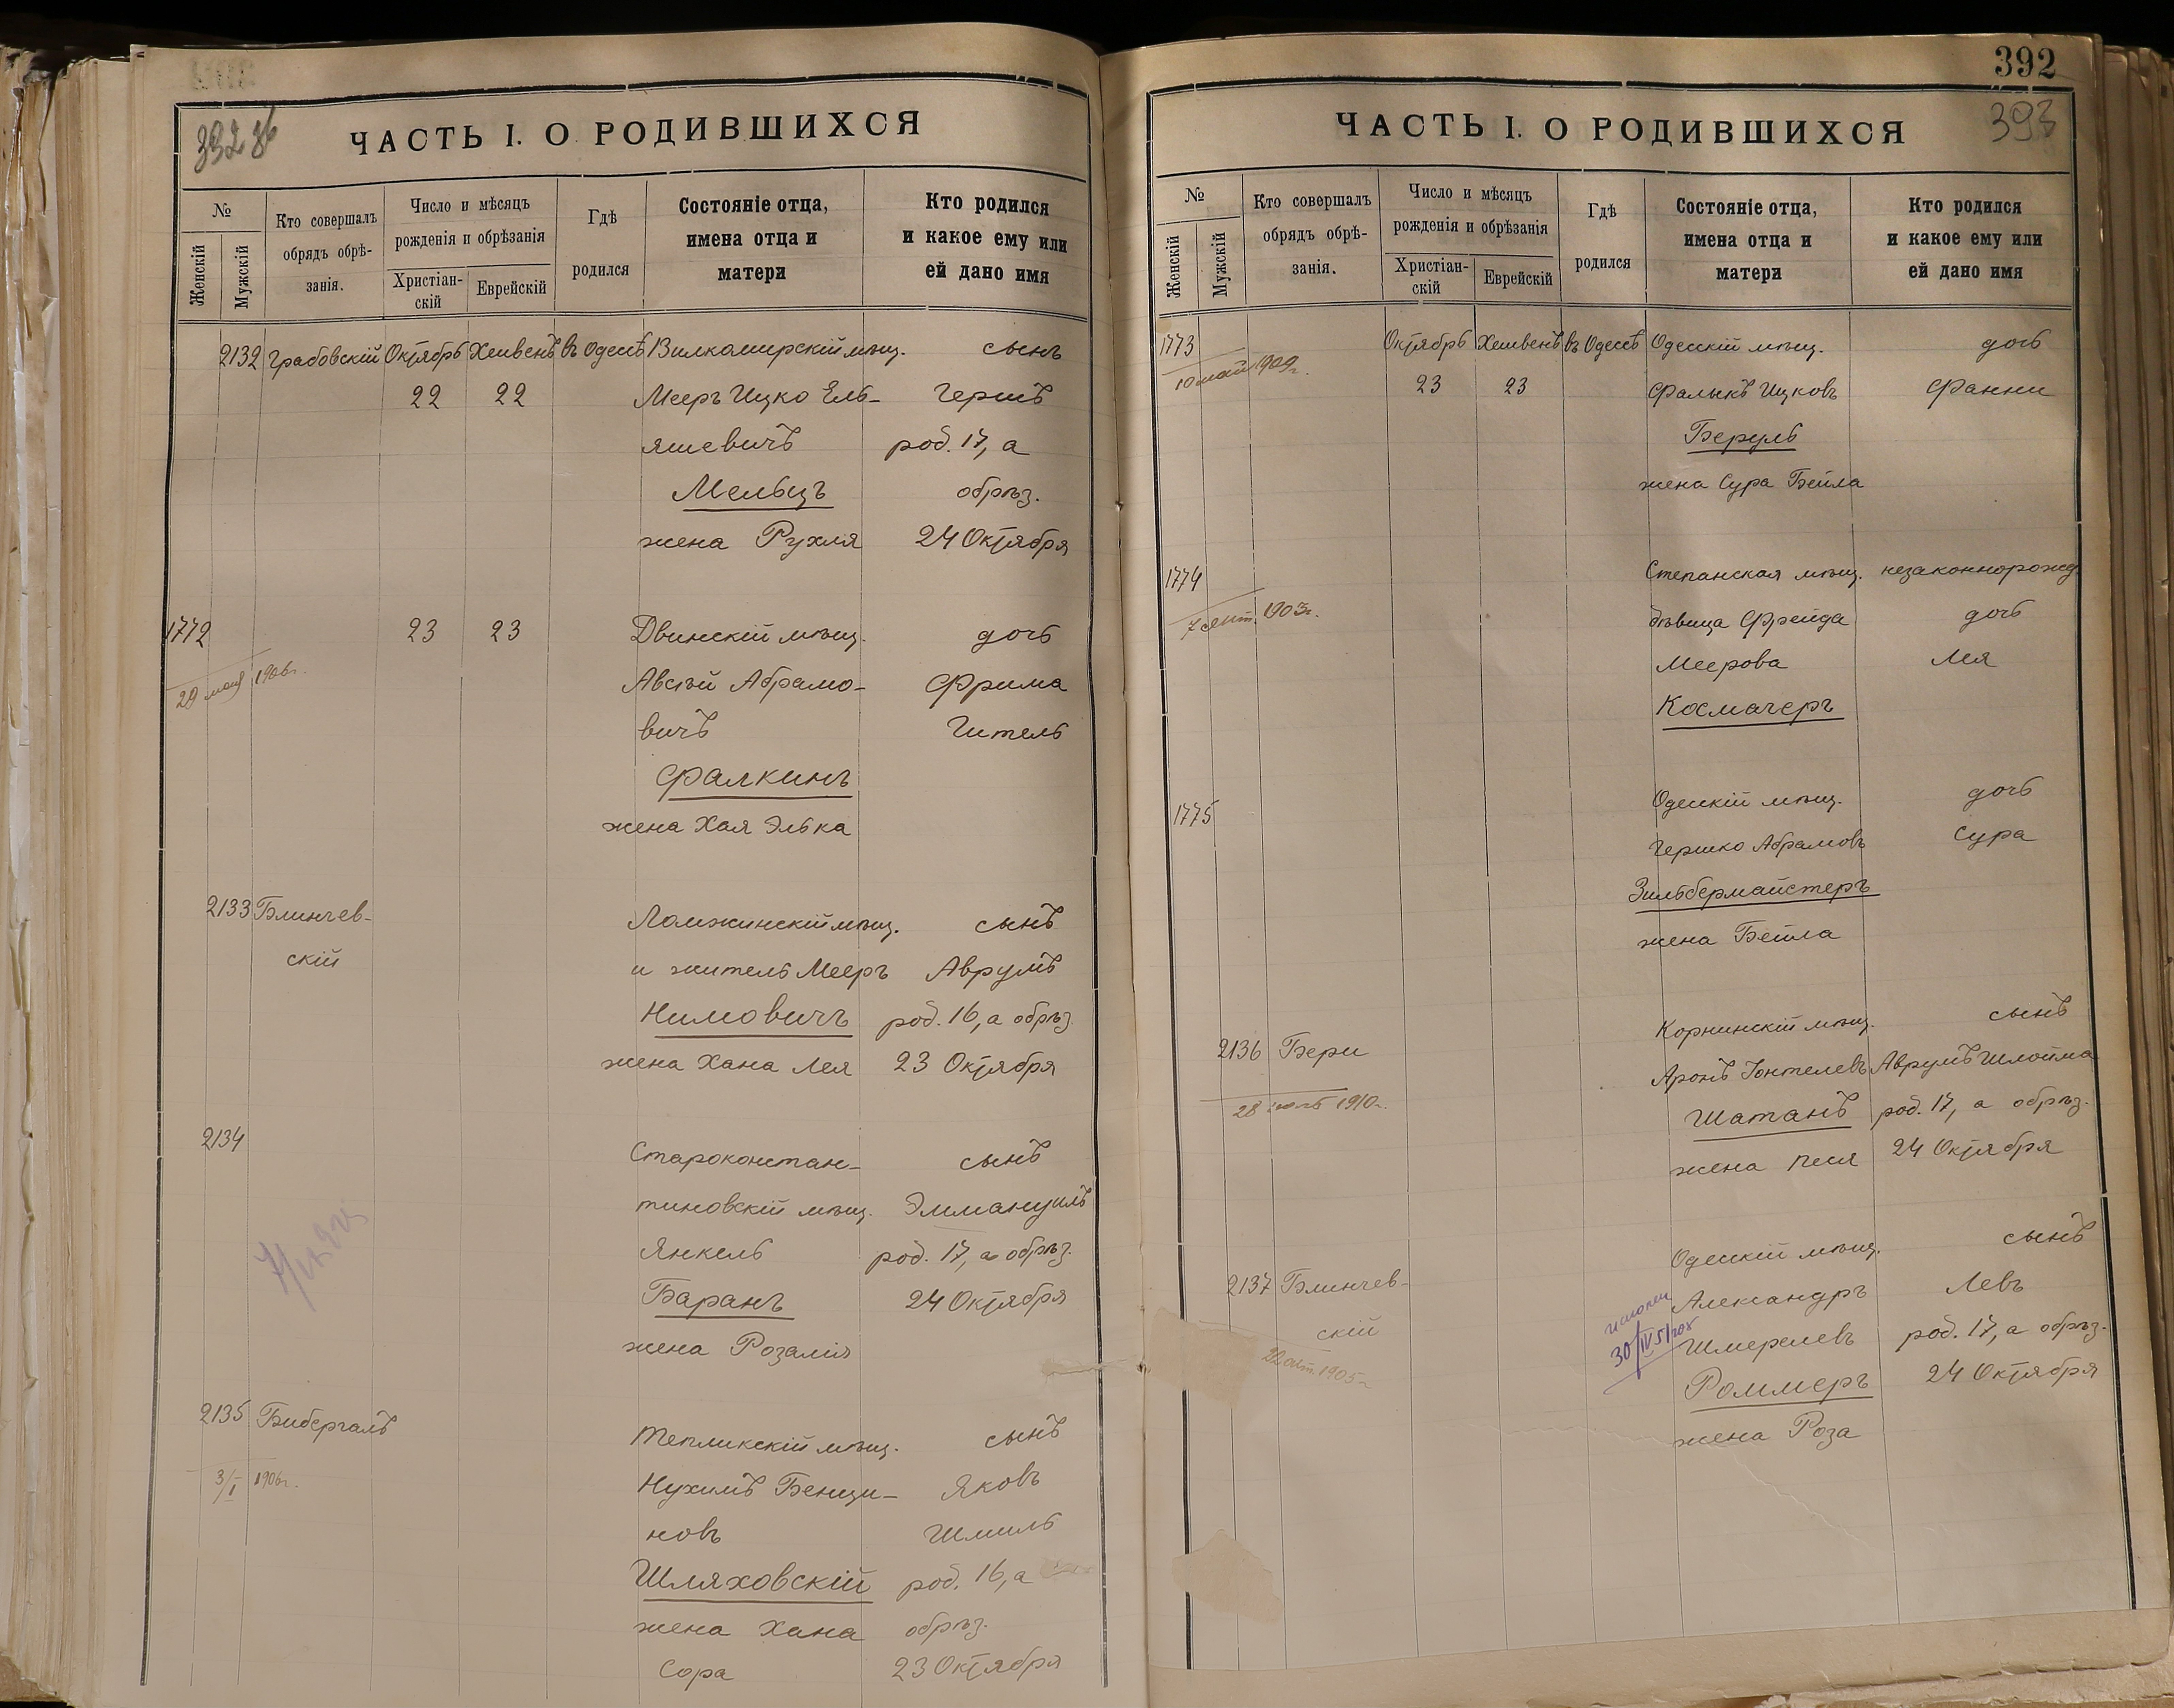 ЧАСТЬ I. О РОДИВШИХСЯ
№
Женскій
Мужскій
Кто совершалъ
обрядъ обрѣ-
занія.
Число и мѣсяцъ
рожденія и обрѣзанія
Христіан-
скій
Еврейскій
Гдѣ
родился
Состояніе отца,
имена отца и
матери
Кто родился
и какое ему или
ей дано имя
2132 Грабовскій Октябрь Хешвенъ въ Одессѣ Вилкомирскій мѣщ. сынъ
22 22 Мееръ Ицко Ель- Гершъ
яшевичъ род. 17, а
Мельцъ обрѣз.
жена Рухля 24 Октября
1772 23 23 Двинскій мѣщ. дочь
29 мая 1906г. Авсѣй Абрамо- Фрима
вичъ Гитель
Фалкинъ
жена Хая Элька
2133 Блинчев- Ломжинскій мѣщ. сынъ
скій и житель Мееръ Аврумъ
Нимовичъ род. 16, а обрѣз.
жена Хана Лея 23 Октября
2134 Староконстан- сынъ
тиновскій мѣщ. Эммануилъ
Янкель род. 17, а обрѣз.
Баранъ 24 Октября
жена Розалія
2135 Бибергалъ Тепликскій мѣщ. сынъ
3/I 1906г. Нухимъ Бенци- Яковъ
новъ Шмиль
Шляховскій род. 16, а
жена Хана обрѣз.
Сора 23 Октября
392
393
ЧАСТЬ I. О РОДИВШИХСЯ
№
Женскій
Мужскій
Кто совершалъ
обрядъ обрѣ-
занія.
Число и мѣсяцъ
рожденія и обрѣзанія
Христіан-
скій
Еврейскій
Гдѣ
родился
Состояніе отца,
имена отца и
матери
Кто родился
и какое ему или
ей дано имя
1773 Октябрь Хешвенъ въ Одессѣ Одесскій мѣщ. дочь
10 май 1909г. 23 23 Фалыкъ Ицковъ Фанни
Беруль
жена Сура Бейла
1774 Степанская мѣщ. незаконнорожд.
7 сент. 1903г. дѣвица Фрейда дочь
Меерова Лея
Космачеръ
1775 Одесскій мѣщ. дочь
Гершко Абрамовъ Сура
Зильбермайстеръ
жена Бейла
2136 Бери Корнинскій мѣщ. сынъ
Аронъ Іонтелевъ Аврумъ Шлойма
28 1910г. Шатанъ род. 17, а обрѣз.
жена Песя 24 Октября
2137 Блинчев- Одесскій мѣщ. сынъ
скій Александръ Левъ
22 1905г 30/IV Шмерелевъ род. 17, а обрѣз.
Роммеръ 24 Октября
жена Роза